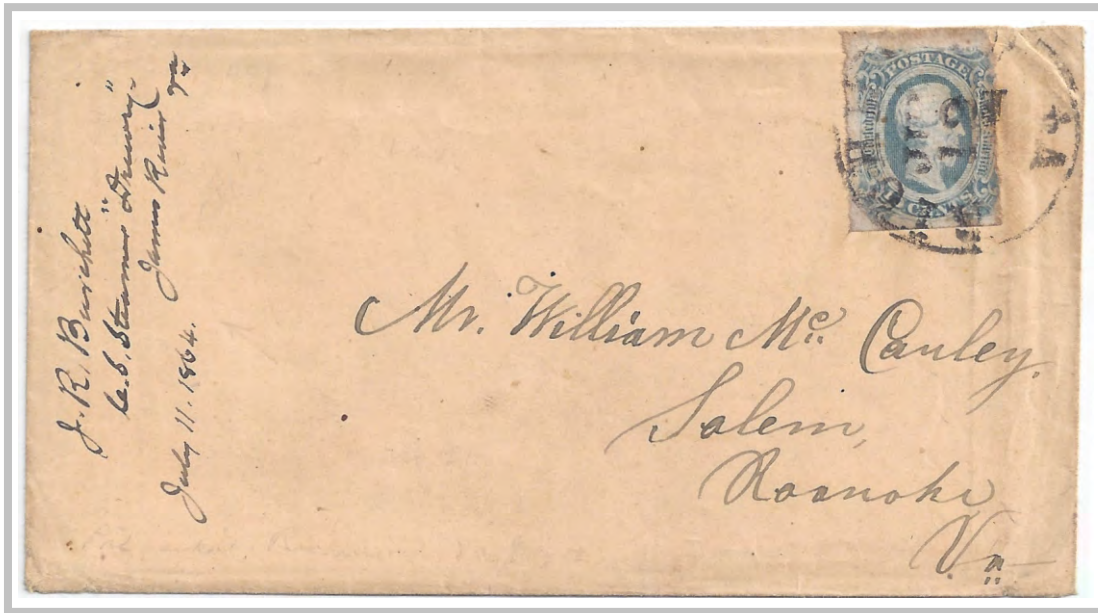 J. R. Burchett
C. S. Steamer "Drewry"
James River Va
July 11. 1864.
POSTAGE
CENTS
Mr. William Mc. Cauley,
Salem,
Roanoke
Va